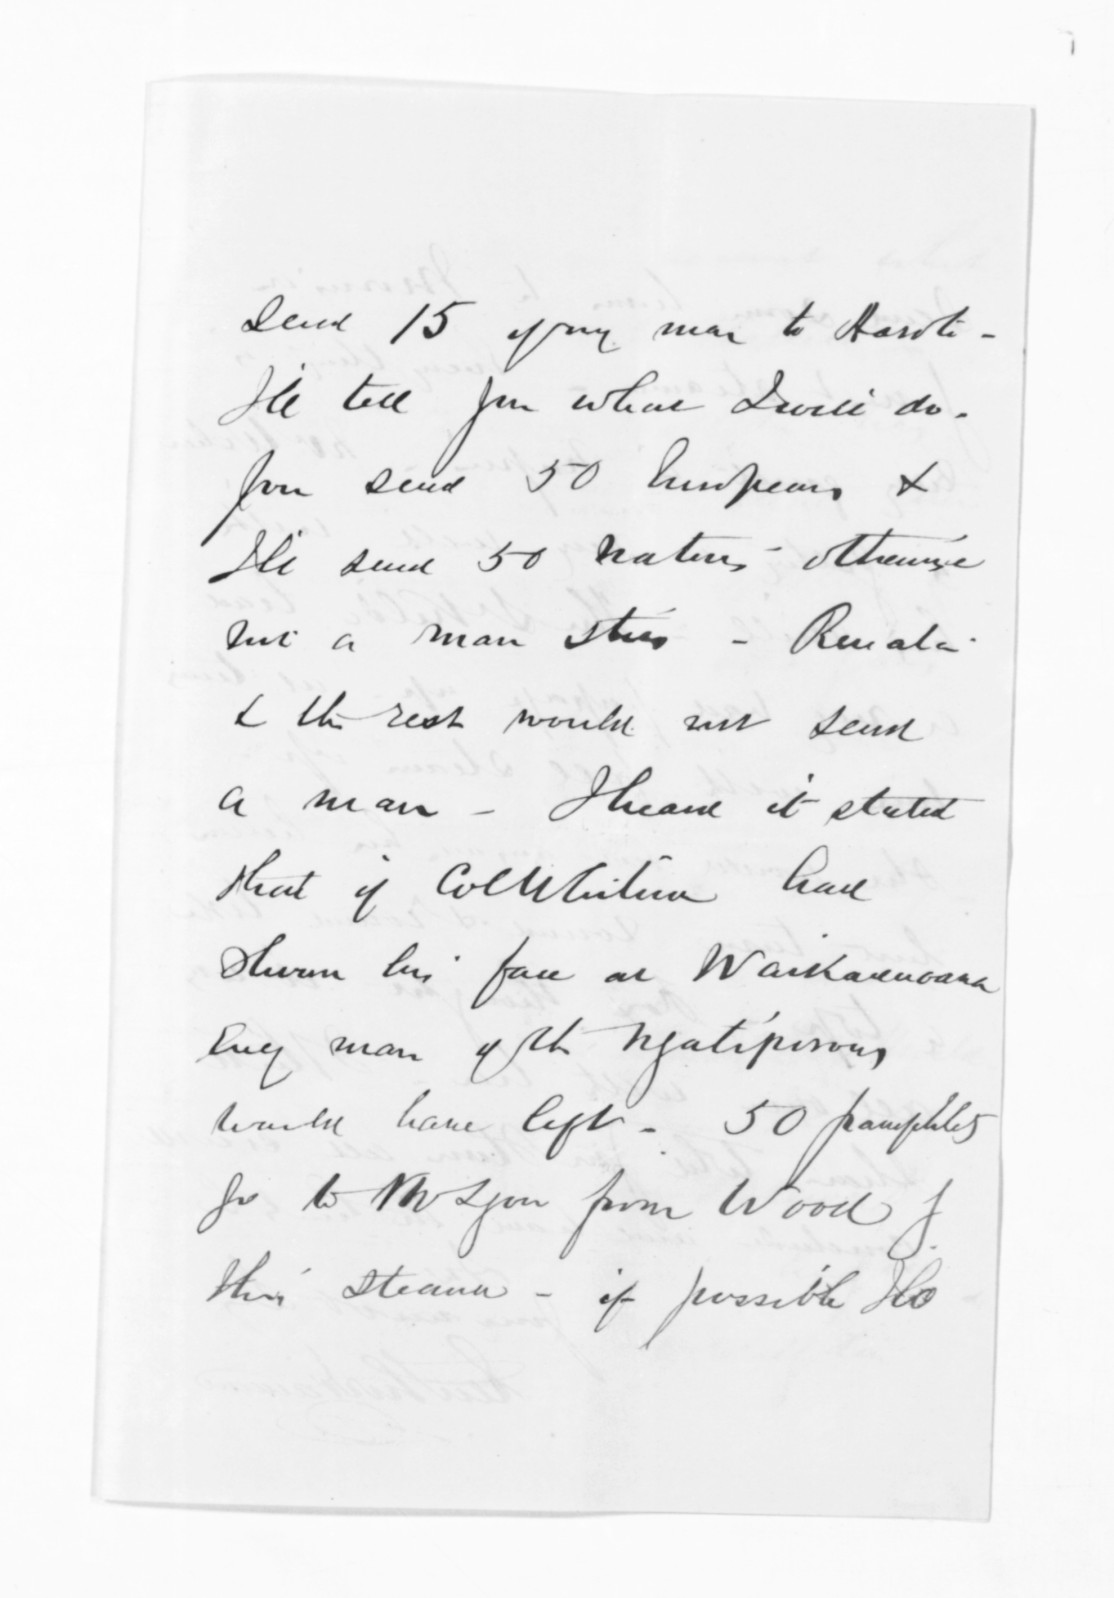 send 15 of my men to Haroto -
I'll tell you what I will do.
you send 50 Europeans &
I'll send 50 natives - otherwise
not a man stirs - Renata
& the rest would not send
a man - I heard it stated
that if Col Whitmore had
shewn his face at Waikaremoana
every man of the Ngatiporous
would have left - 50 pamphlets
go to Mr Lyon from Wood by
this steamer - if possible I'll